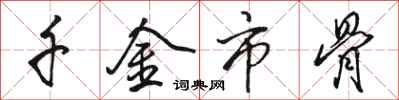 千金市骨
词典网